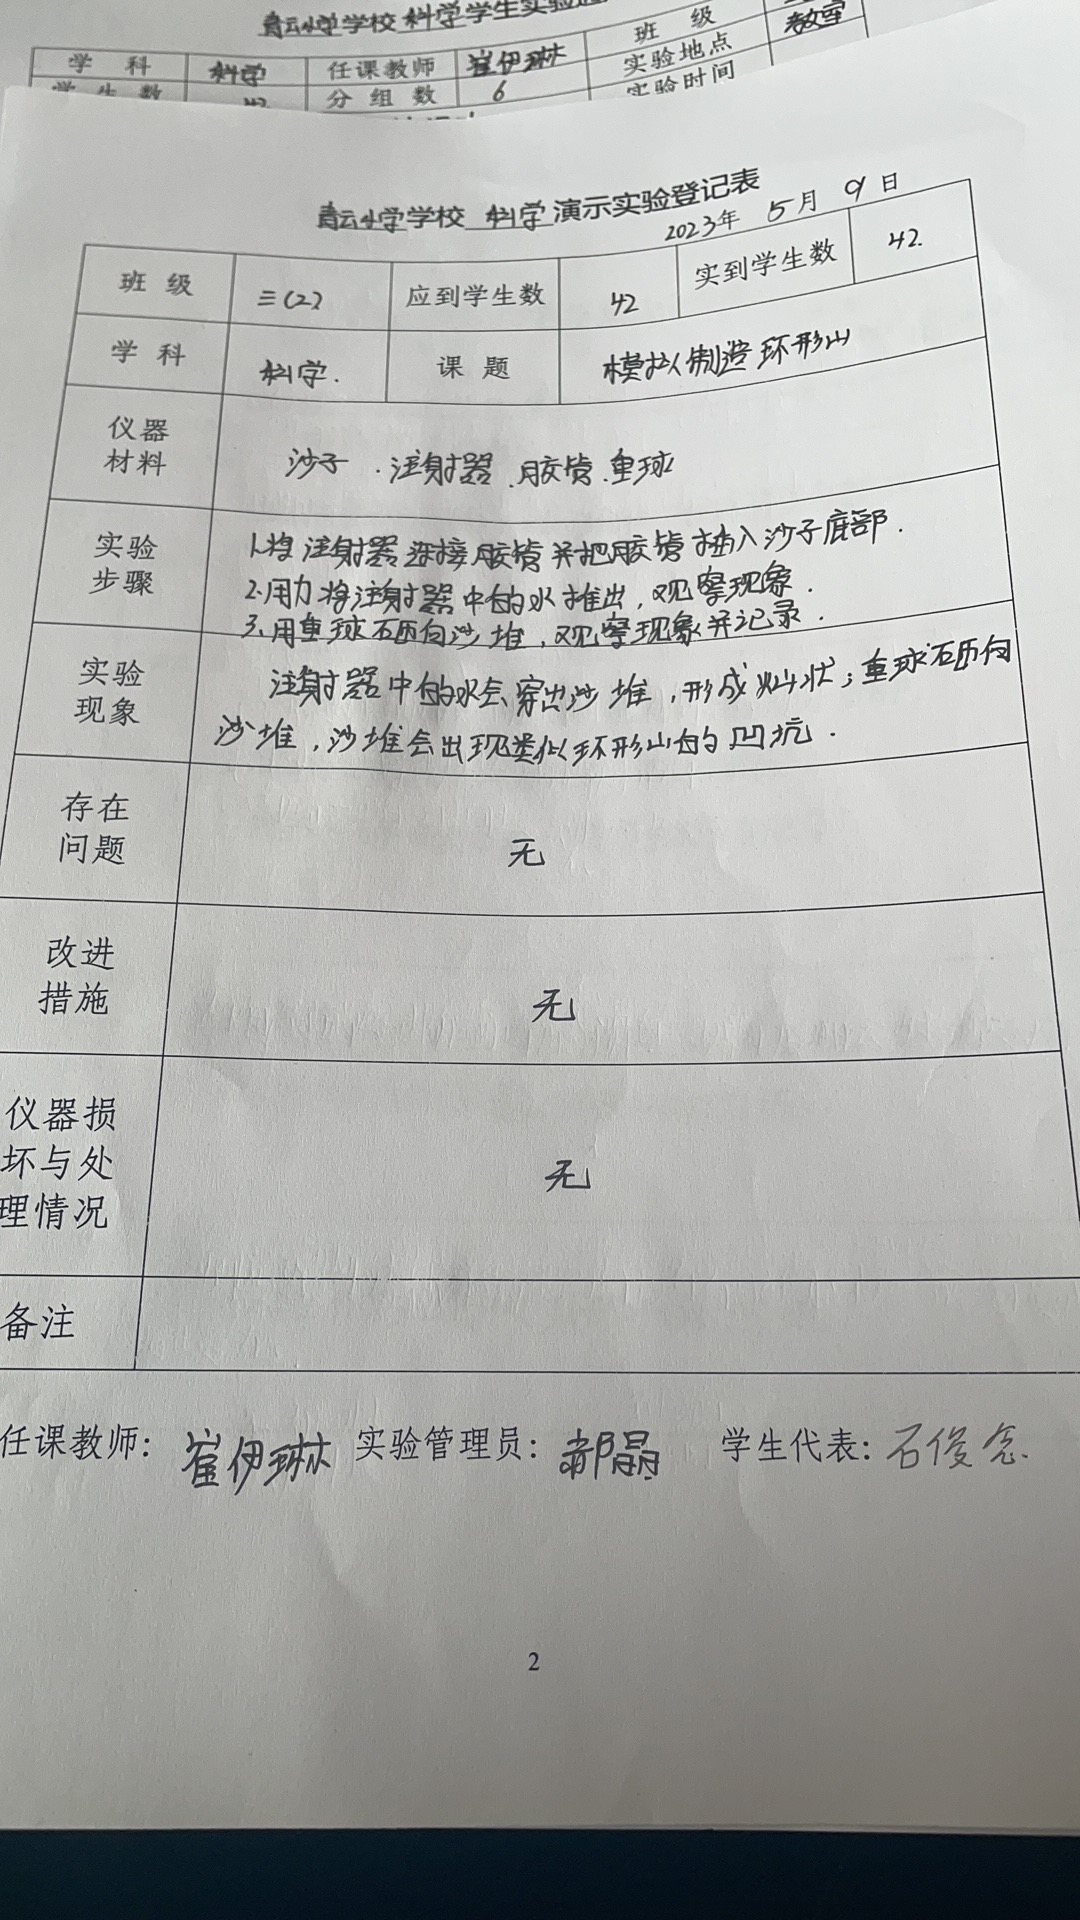 青云小学学校 科学学生实验
学 科 科学 任课教师 崔伊琳 班 级
学 生 数 42 分 组 数 6 实验地点 教室
实验时间
青云小学学校 科学 演示实验登记表
2023年 5月 9日
班 级 三(2) 应到学生数 42 实到学生数 42.
学 科 科学. 课 题 模拟制造环形山
仪器
材料
沙子.注射器.胶管.重球
实验
步骤
1.将注射器连接胶管并把胶管插入沙子底部.
2.用力将注射器中的水推出,观察现象.
3.用重球砸向沙堆,观察现象并记录.
实验
现象
注射器中的水会穿出沙堆,形成山状;重球砸向
沙堆,沙堆会出现类似环形山的凹坑.
存在
问题
无
改进
措施
无
仪器损
坏与处
理情况
无
备注
任课教师: 崔伊琳 实验管理员: 郝晶 学生代表: 石俊
2